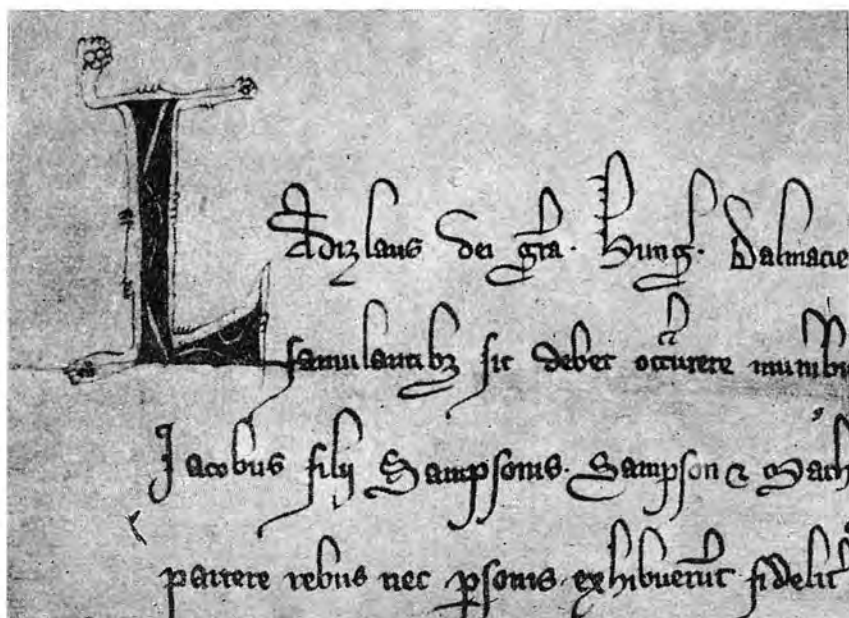 Ladizlaus dei gra. Hung. Dalmacie
famulantibz sic debet occurere munibu
Jacobus filij Sampsonis. Sampson ⁊ Mach
parcere rebus nec psonis exhibuerut fidelit